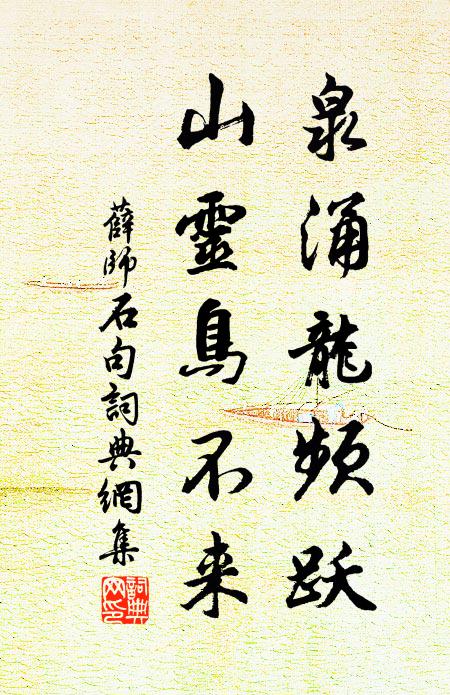 泉涌龍頻跃
山靈鳥不来
薛師石句詞典網集
詞典网印